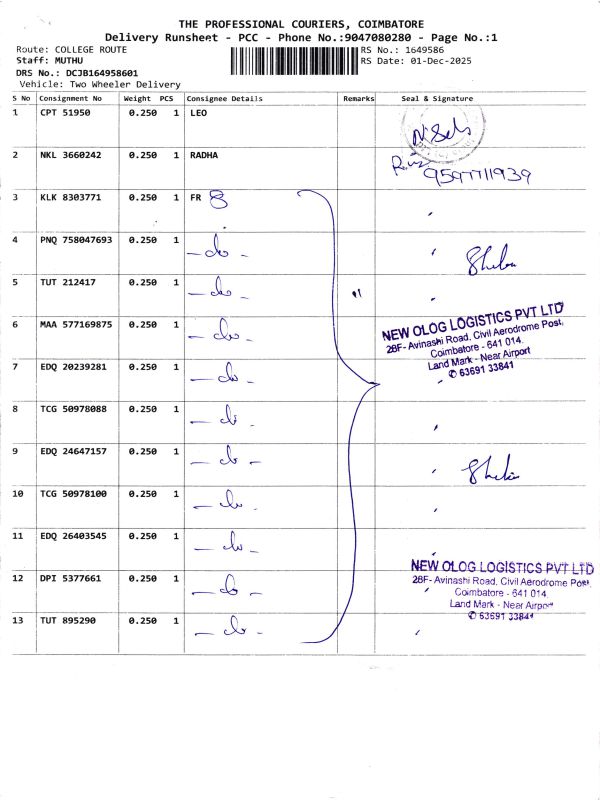 THE PROFESSIONAL COURIERS, COIMBATORE
Delivery Runsheet - PCC - Phone No.:9047080280 - Page No.:1
Route: COLLEGE ROUTE
RS No.: 1649586
Staff: MUTHU
RS Date: 01-Dec-2025
DRS No.: DCJB164958601
Vehicle: Two Wheeler Delivery
S No Consignment No Weight PCS Consignee Details Remarks Seal & Signature
1 CPT 51950 0.250 1 LEO
2 NKL 3660242 0.250 1 RADHA
9597711939
3 KLK 8303771 0.250 1 FR 8
4 PNQ 758047693 0.250 1 - do -
5 TUT 212417 0.250 1 - do -
6 MAA 577169875 0.250 1 - do -
NEW OLOG LOGISTICS PVT LTD
28F- Avinashi Road, Civil Aerodrome Post,
Coimbatore - 641 014.
Land Mark - Near Airport
✆ 63691 33841
7 EDQ 20239281 0.250 1 - do -
8 TCG 50978088 0.250 1 - do -
9 EDQ 24647157 0.250 1 - do -
10 TCG 50978100 0.250 1 - do -
11 EDQ 26403545 0.250 1 - do -
NEW OLOG LOGISTICS PVT LTD
28F- Avinashi Road, Civil Aerodrome Post,
Coimbatore - 641 014.
Land Mark - Near Airport
✆ 63691 33841
12 DPI 5377661 0.250 1 - do -
13 TUT 895290 0.250 1 - do -